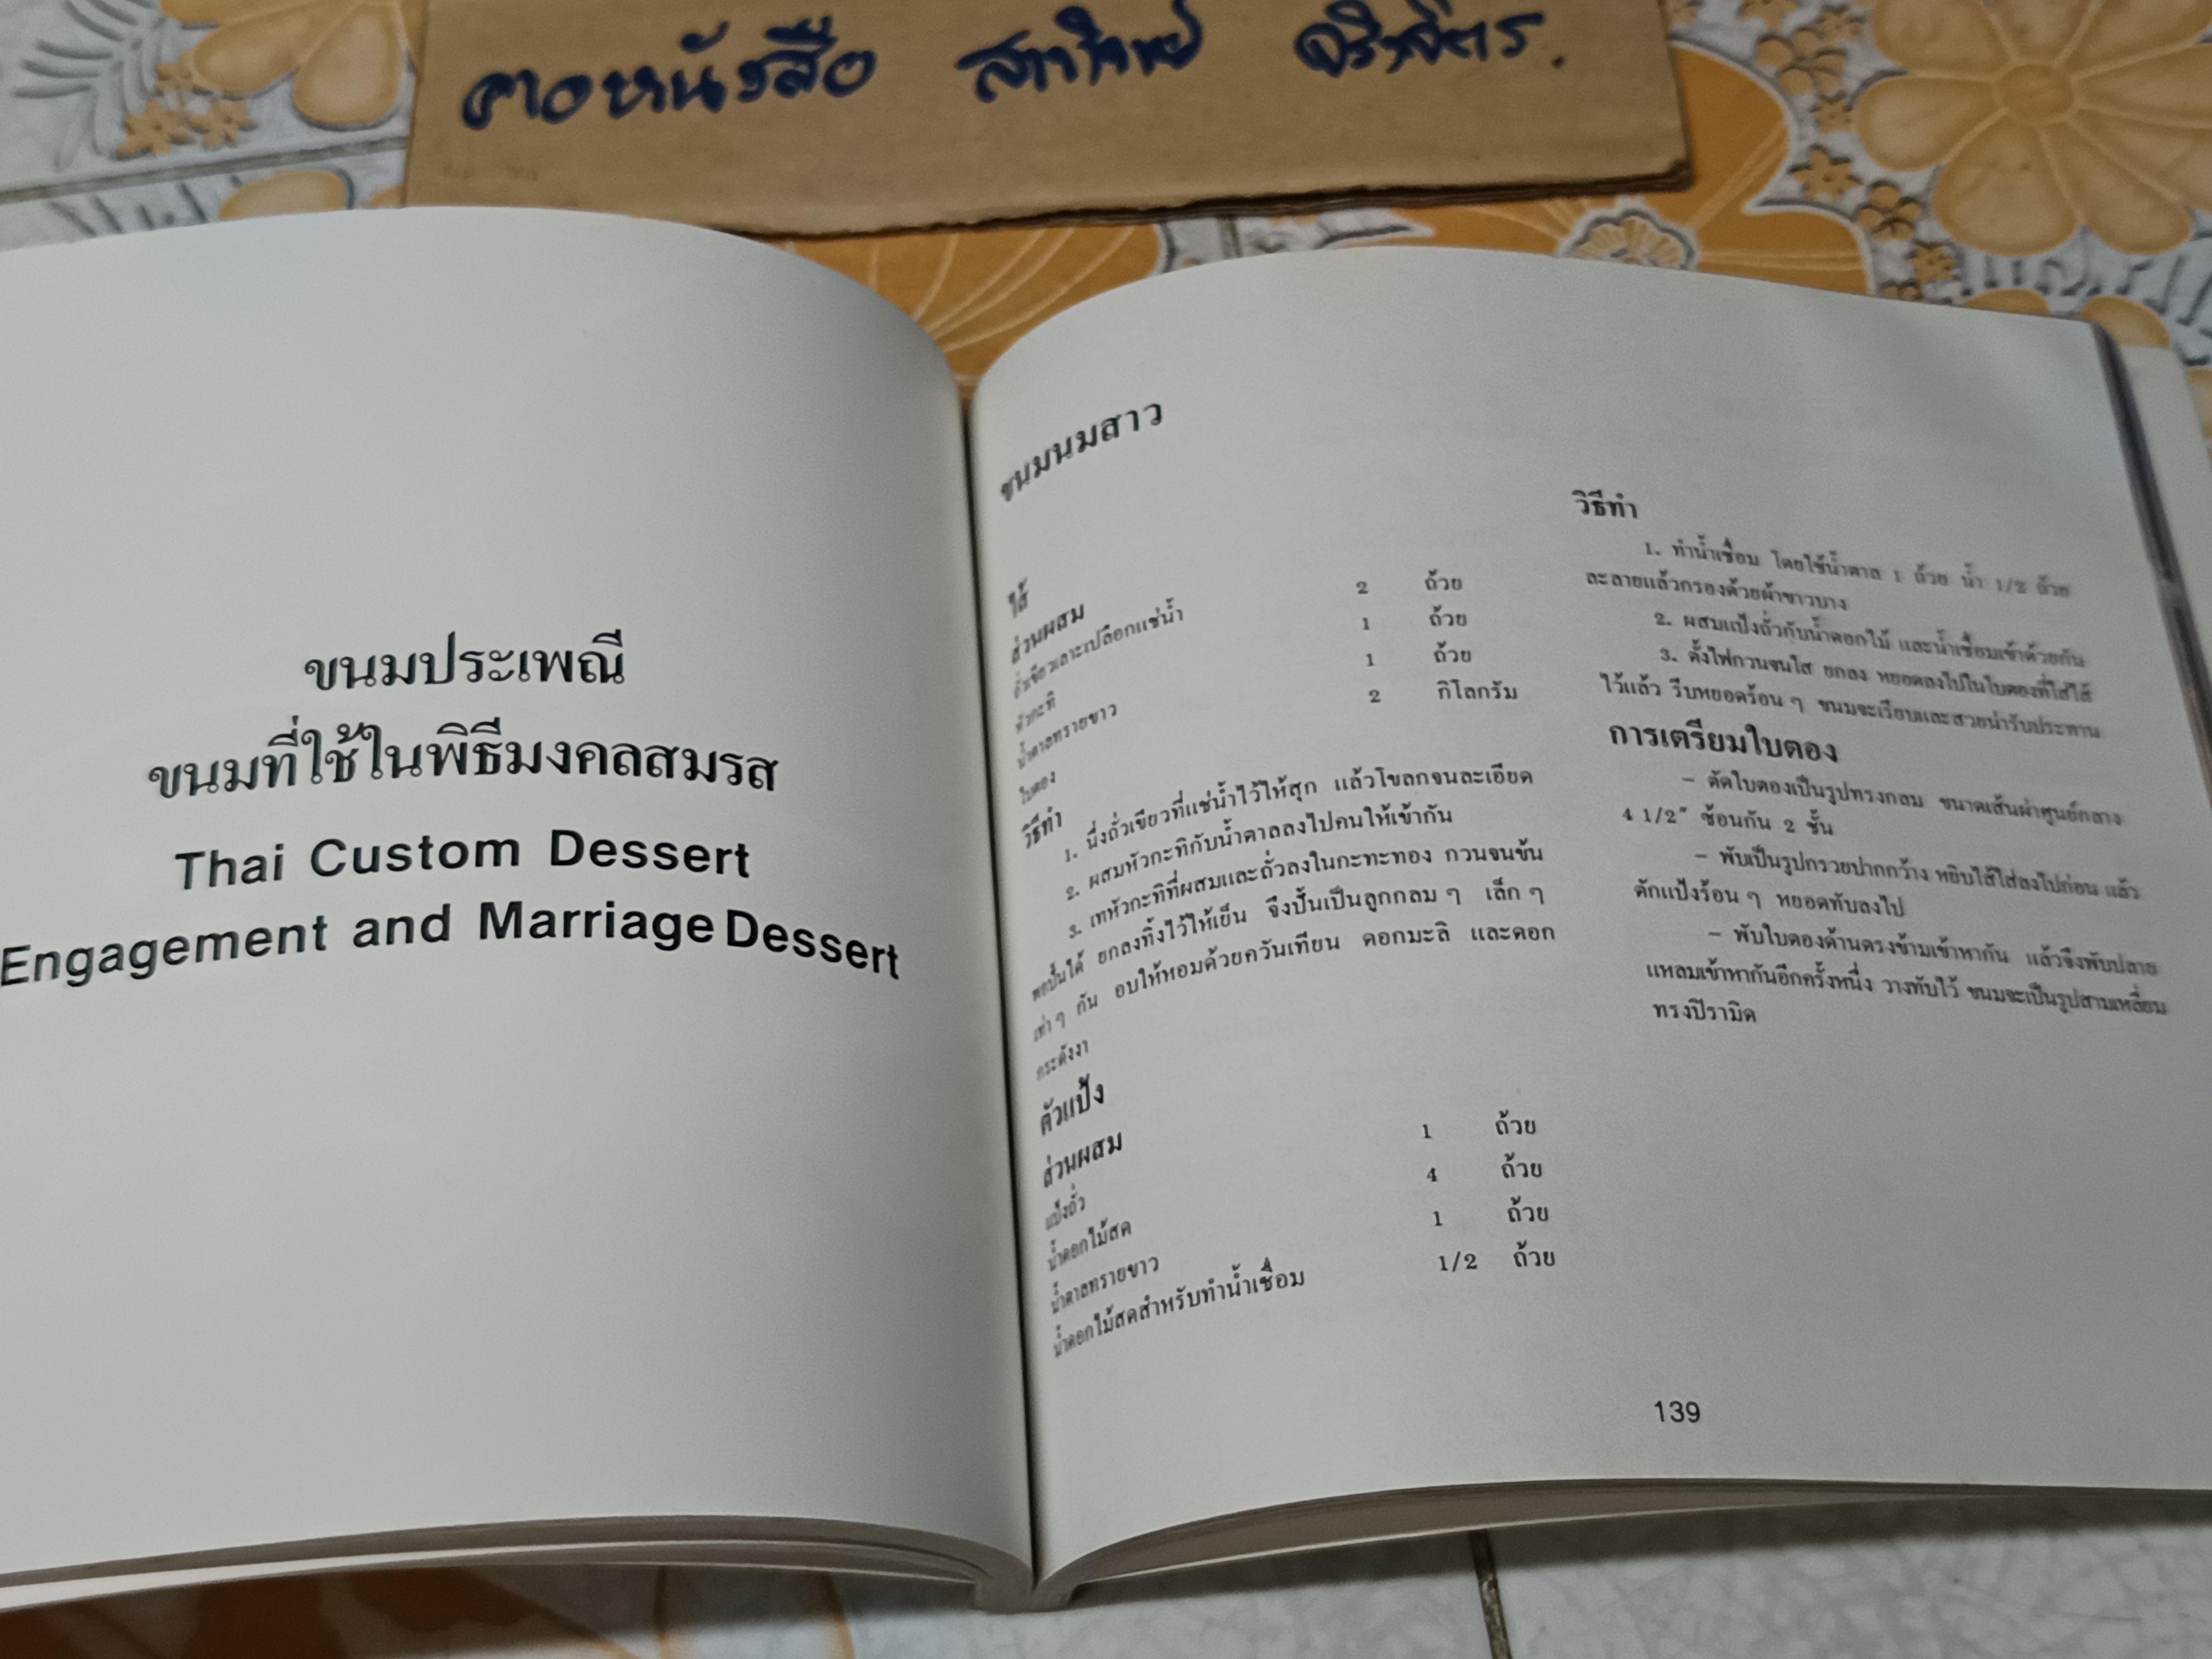 ขนมประเพณี
ขนมที่ใช้ในพิธีมงคลสมรส
Thai Custom Dessert
Engagement and Marriage Dessert
ขนมนมสาว
ไส้
ส่วนผสม
ถั่วเขียวเลาะเปลือกแช่น้ำ 2 ถ้วย
หัวกะทิ 1 ถ้วย
น้ำตาลทรายขาว 1 ถ้วย
ใบตอง 2 กิโลกรัม
วิธีทำ
1. นึ่งถั่วเขียวที่แช่น้ำไว้ให้สุก แล้วโขลกจนละเอียด
2. ผสมหัวกะทิกับน้ำตาลลงไปคนให้เข้ากัน
3. เทหัวกะทิที่ผสมและถั่วลงในกะทะทอง กวนจนข้น
พอปั้นได้ ยกลงทิ้งไว้ให้เย็น จึงปั้นเป็นลูกกลม ๆ เล็ก ๆ
เท่า ๆ กัน อบให้หอมด้วยควันเทียน ดอกมะลิ และดอก
กระดังงา
ตัวแป้ง
ส่วนผสม
แป้งถั่ว 1 ถ้วย
น้ำดอกไม้สด 4 ถ้วย
น้ำตาลทรายขาว 1 ถ้วย
น้ำดอกไม้สดสำหรับทำน้ำเชื่อม 1/2 ถ้วย
วิธีทำ
1. ทำน้ำเชื่อม โดยใช้น้ำตาล 1 ถ้วย น้ำ 1/2 ถ้วย
ละลายแล้วกรองด้วยผ้าขาวบาง
2. ผสมแป้งถั่วกับน้ำดอกไม้ และน้ำเชื่อมเข้าด้วยกัน
3. ตั้งไฟกวนจนใส ยกลง หยอดลงไปในใบตองที่ใส่ไส้
ไว้แล้ว รีบหยอดร้อน ๆ ขนมจะเรียบและสวยน่ารับประทาน
การเตรียมใบตอง
– ตัดใบตองเป็นรูปทรงกลม ขนาดเส้นผ่าศูนย์กลาง
4 1/2" ซ้อนกัน 2 ชั้น
– พับเป็นรูปกรวยปากกว้าง หยิบไส้ใส่ลงไปก่อน แล้ว
ตักแป้งร้อน ๆ หยอดทับลงไป
– พับใบตองด้านตรงข้ามเข้าหากัน แล้วจึงพับปลาย
แหลมเข้าหากันอีกครั้งหนึ่ง วางทับไว้ ขนมจะเป็นรูปสามเหลี่ยม
ทรงปิรามิด
139